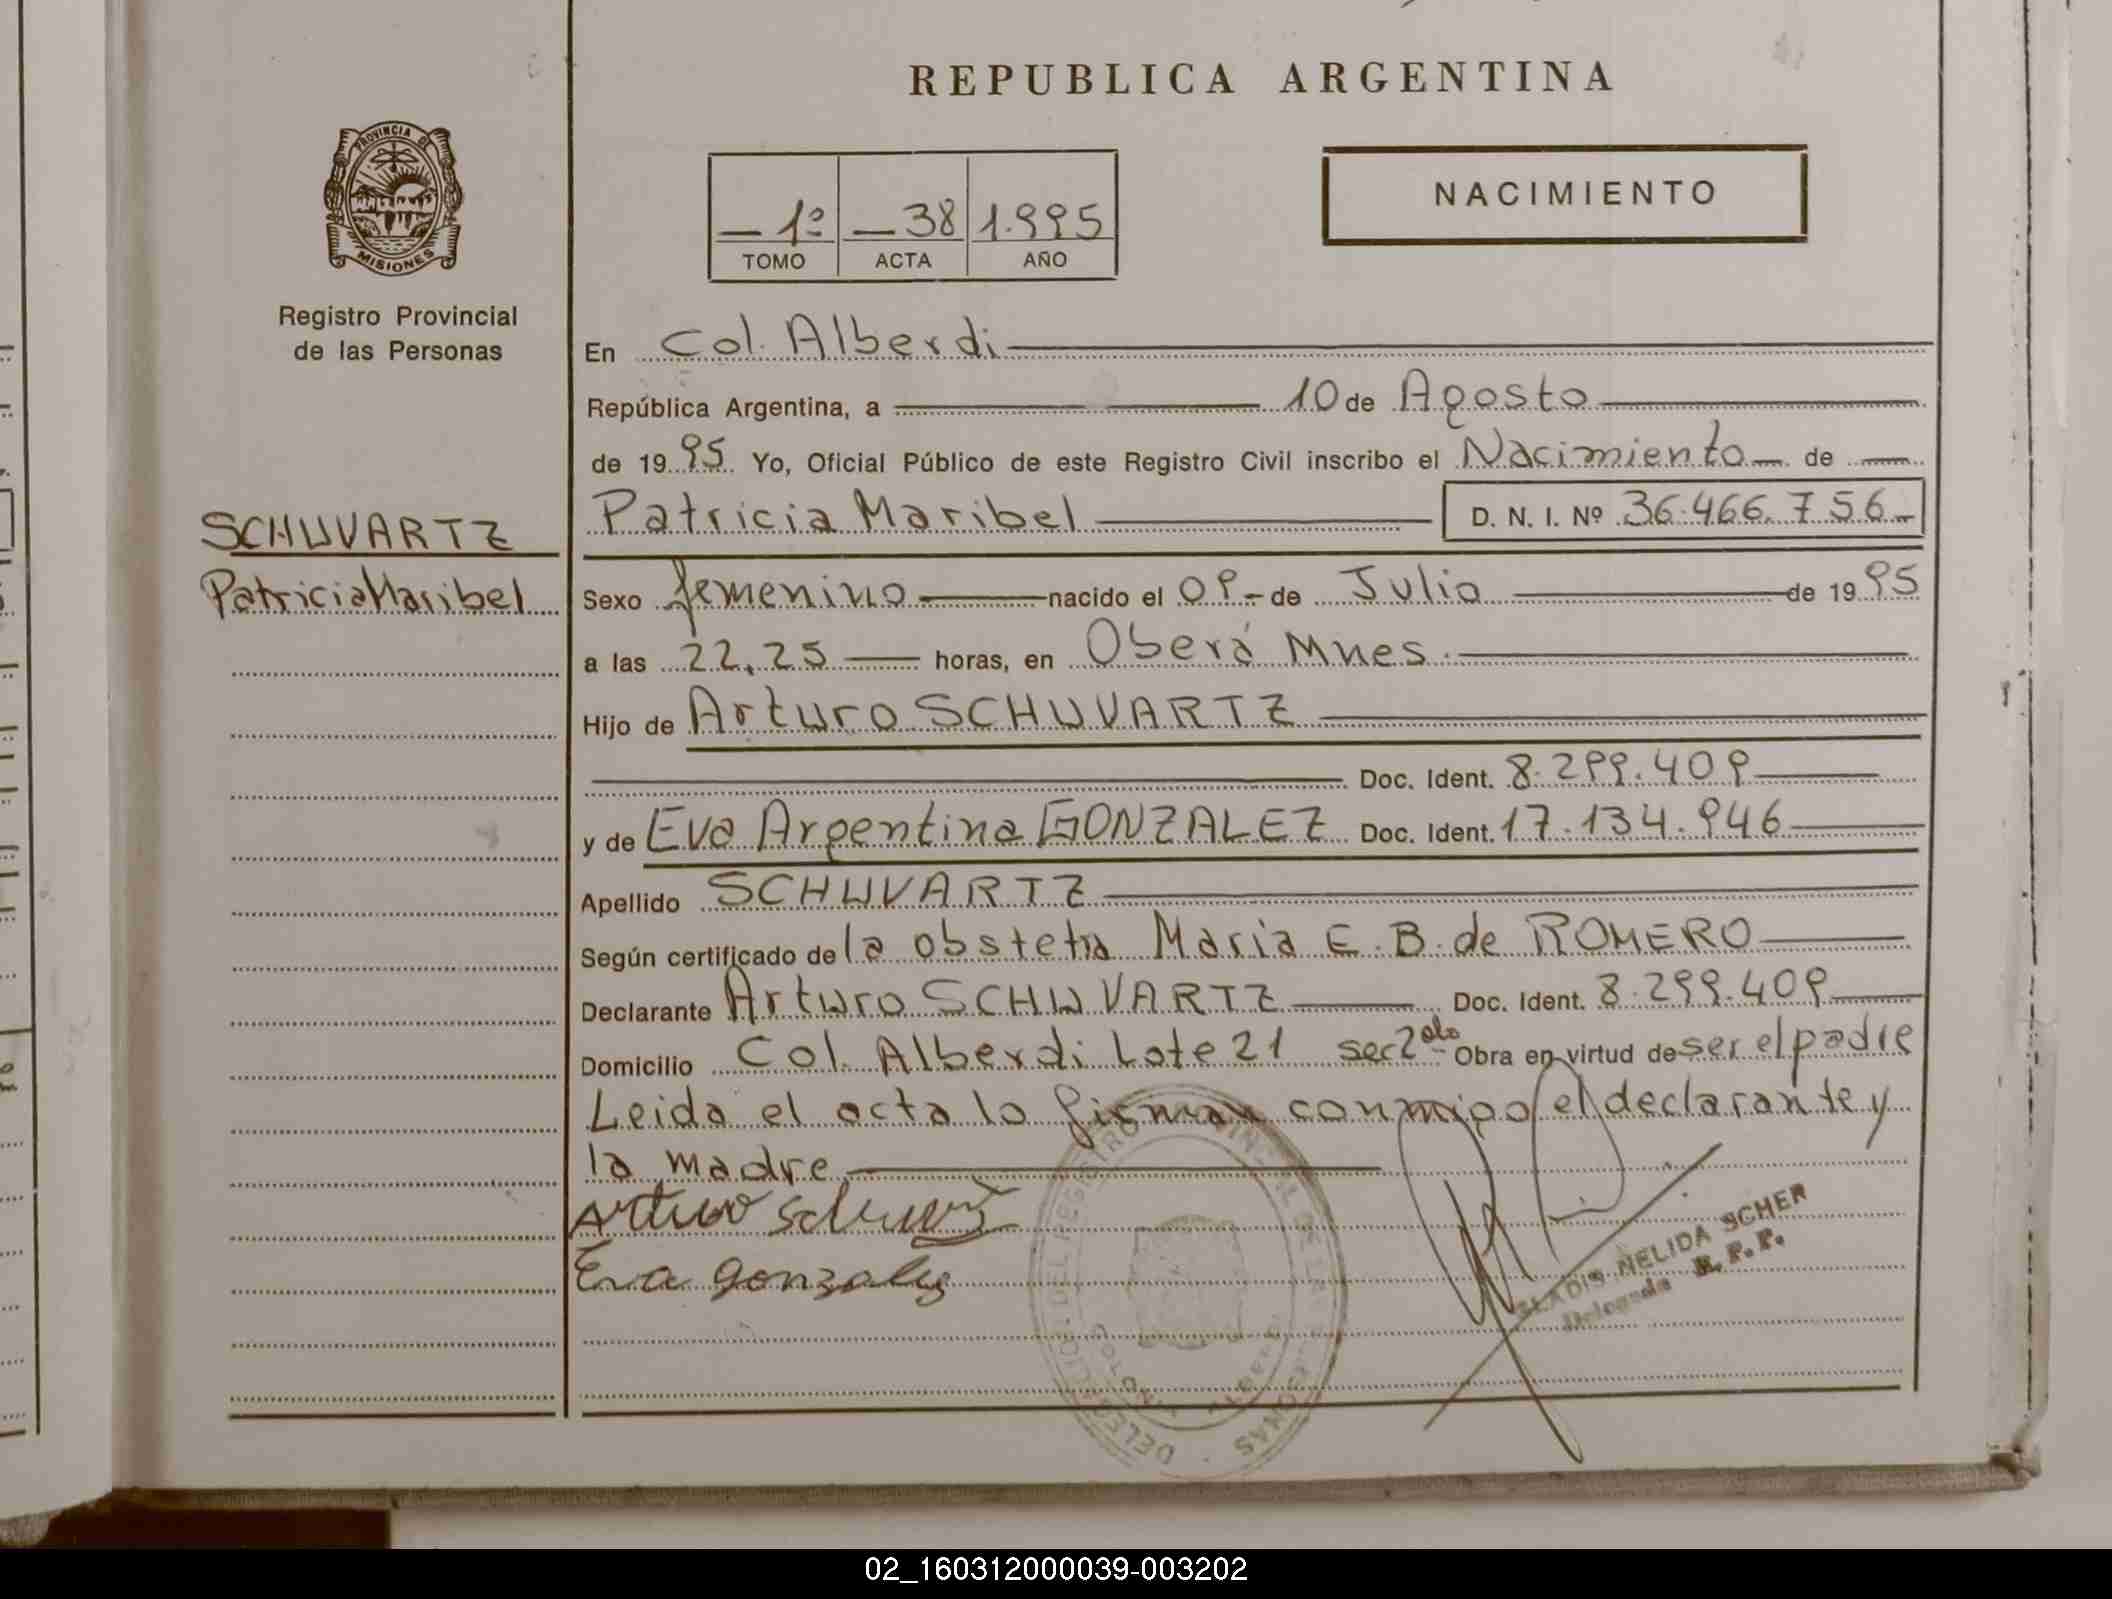 REPUBLICA ARGENTINA
PROVINCIA DE
MISIONES
1º 38 1.995
TOMO ACTA AÑO
NACIMIENTO
Registro Provincial
de las Personas
SCHUVARTZ
Patricia Maribel
En Col. Alberdi
República Argentina, a 10 de Agosto
de 1995 Yo, Oficial Público de este Registro Civil inscribo el Nacimiento de
Patricia Maribel D. N. I. Nº 36.466.756
Sexo femenino nacido el 09 de Julio de 1995
a las 22,25 horas, en Oberá Mnes.
Hijo de Arturo SCHUVARTZ
Doc. Ident. 8.299.409
y de Eva Argentina GONZALEZ Doc. Ident. 17.134.946
Apellido SCHUVARTZ
Según certificado de la obsteta Maria E. B. de ROMERO
Declarante Arturo SCHUVARTZ Doc. Ident. 8.299.409
Domicilio Col. Alberdi Lote 21 sec 2da Obra en virtud de ser el padre
Leida el acta lo firman conmigo el declarante y
la madre
Arturo
Eva Gonzalez
DELEGACION DEL REGISTRO PROVINCIAL DE LAS PERSONAS
GLADIS NELIDA SCHER
Delegada R. P. P.
02_160312000039-003202